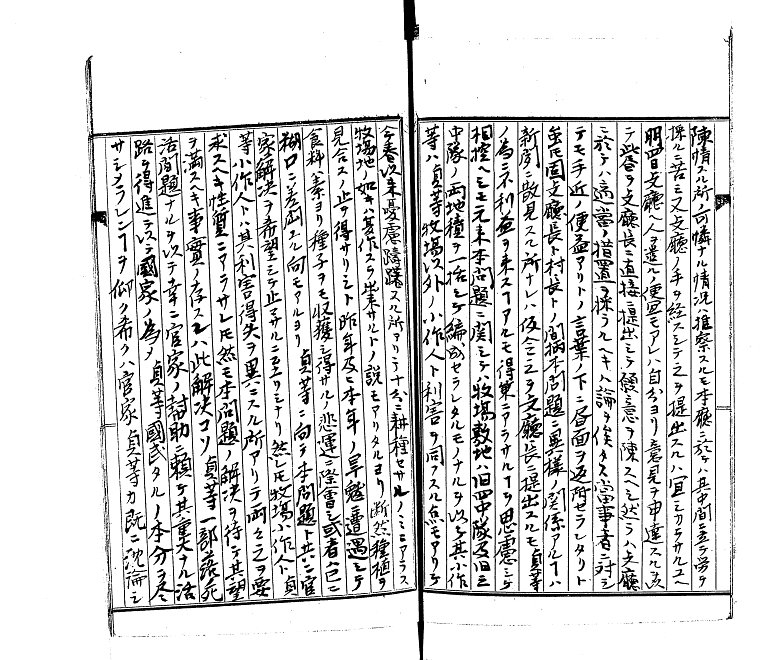 陳情スル所ノ可憐ナル情況ハ推察スルモ本廳ニ於テハ其中間ニ立テ労ヲ
採ルニ苦ミ又支廳ノ手ヲ経スシテ之ヲ提出スルハ冝シカラサルユヘ
明四日支廳ヘ人ヲ遣ルノ便冝モアレハ自分ヨリ意見ヲ申達スル
テ此書ヲ支廳長ニ直接ニ提出シテ縷意ヲ陳スヘシ然ラハ支廳
ニ於テハ適當ノ措置ヲ採ラルヘキハ論ヲ俟タス當事者ニ対シ
テモ手近ノ便益アリトノ言葉ノ下ニ書面ヲ返附セラレタリト
虽モ固支廳長ト村長トノ間柄本問題ニ異様ノ関係アルハ
新聞ニ散見スル所ナレハ仮令之ヲ支廳長ニ提出スルモ貞等
ノ為ニ不利益ヲ来スヿアルモ得策ニアラサルヿヲ思慮シテ
相控ヘシモ元来本問題ニ関シテハ牧場敷地ハ旧四中隊及旧三
中隊ノ両地積ヲ一括シテ編成セラレタルモノナルヲ以テ其小作
等ハ貞等牧場以外ノ小作人ト利害ヲ同フスル点モアリテ
今春以来憂慮躊躇スル所アリテナホ耕種セサルノミニアラス
牧場地ノ如キハ蒼作スラ出来サルトノ説モアリタルヨリ断然種植ヲ
見合スノ止ヲ得サリシト昨年及ヒ本年ノ旱魃ニ遭遇シテ
食料ハ素ヨリ種子ヲモ収獲シ得サルノ悲運ニ際會シ或者ハ已ニ
糊口ニ差支スル向モアルヨリ貞等ニ向テ本問題ト共ニ官
家解決ヲ希望シテ止マサルニ至リシナリ然レモ牧場小作人ト貞
等小作人トハ其利害得失ヲ異ニスル所アリテ両々之ヲ要
求スヘキ性質ニアラサレモ然モ本問題ノ解決ヲ待テ其望
ヲ満スヘキ事實ノ存スレハ此解決コソ貞等一部落死
活問題ナルヲ以テ幸ニ官家ノ幇助ニ頼テ其重大ナル活
路ヲ得進テハ国家ノ為メ貞等國民タルノ本分ヲ尽
サシメラレンヿヲ仰ノ希クハ官家貞等カ既ニ沈淪シ